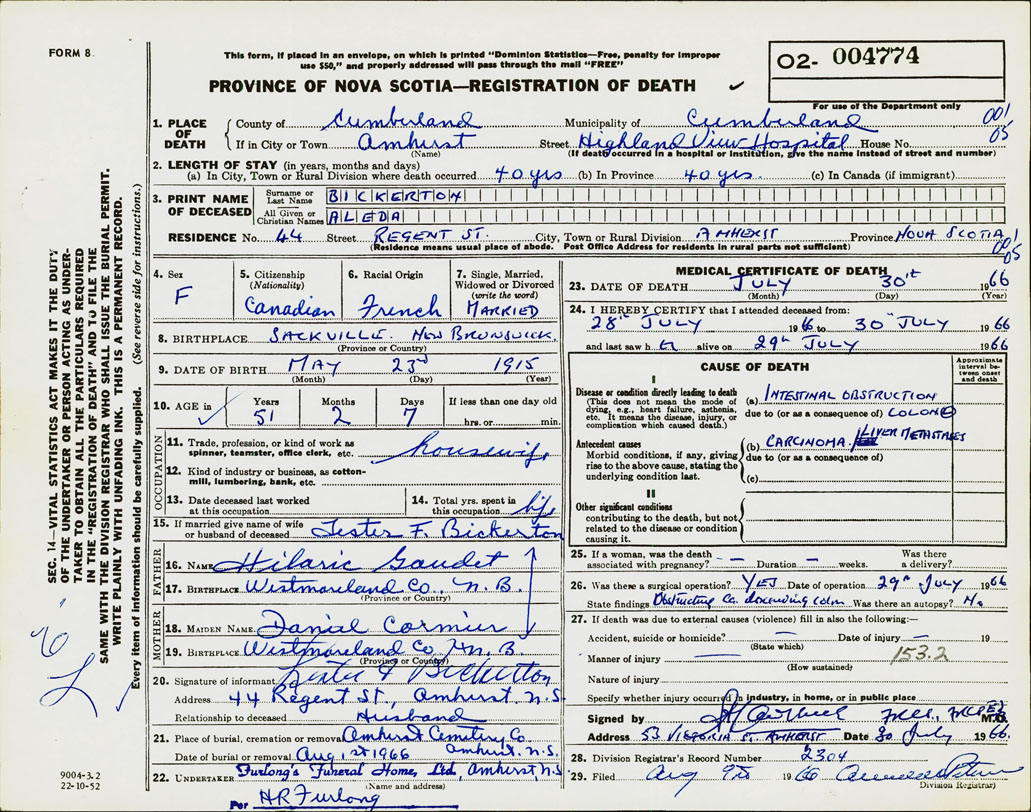 FORM 8
This form, if placed in an envelope, on which is printed "Dominion Statistics—Free, penalty for improper
use $50," and properly addressed will pass through the mail "FREE"
PROVINCE OF NOVA SCOTIA—REGISTRATION OF DEATH
O2- 004774
For use of the Department only
001
05
1. PLACE OF DEATH
County of Cumberland Municipality of Cumberland
If in City or Town Amhurst Street Highland View Hospital House No.
(Name) (If death occurred in a hospital or institution, give the name instead of street and number)
2. LENGTH OF STAY (in years, months and days)
(a) In City, Town or Rural Division where death occurred 40 yrs (b) In Province 40 yrs. (c) In Canada (if immigrant)
3. PRINT NAME OF DECEASED
Surname or Last Name BICKERTON
All Given or Christian Names ALEDA
RESIDENCE No. 44 Street REGENT ST. City, Town or Rural Division AMHERST Province NOVA SCOTIA
(Residence means usual place of abode. Post Office Address for residents in rural parts not sufficient)
001
05
4. Sex
F
5. Citizenship
(Nationality)
Canadian
6. Racial Origin
French
7. Single, Married,
Widowed or Divorced
(write the word)
MARRIED
8. BIRTHPLACE SACKVILLE. NEW BRUNSWICK.
(Province or Country)
9. DATE OF BIRTH MAY 23rd 1915
(Month) (Day) (Year)
10. AGE in
Years Months Days If less than one day old
51 2 7 hrs. or min.
OCCUPATION
11. Trade, profession, or kind of work as
spinner, teamster, office clerk, etc. housewife
12. Kind of industry or business, as cotton-
mill, lumbering, bank, etc.
13. Date deceased last worked
at this occupation
14. Total yrs. spent in
this occupation life
15. If married give name of wife
or husband of deceased Lester F. Bickerton
FATHER
16. NAME Hilaric Gaudet
17. BIRTHPLACE Westmoreland Co., N.B.
(Province or Country)
MOTHER
18. MAIDEN NAME Danial Cormier
19. BIRTHPLACE Westmoreland Co., N.B.
(Province or Country)
20. Signature of informant Lester F Bickerton
Address 44 Regent St., Amhurst, N.S.
Relationship to deceased Husband
21. Place of burial, cremation or removal Amhurst Cemetery Co
Amhurst, N.S.
Date of burial or removal Aug, 1st 1966
22. UNDERTAKER Furlong's Funeral Home, Ltd, Amhurst N.S.
(Name and address)
Per HR Furlong
MEDICAL CERTIFICATE OF DEATH
23. DATE OF DEATH JULY 30th 1966
(Month) (Day) (Year)
24. I HEREBY CERTIFY that I attended deceased from:
28th JULY 1966 to 30th JULY 1966
and last saw her alive on 29th JULY 1966
CAUSE OF DEATH
Approximate
interval be-
tween onset
and death
I
Disease or condition directly leading to death
(This does not mean the mode of
dying, e.g., heart failure, asthenia,
etc. It means the disease, injury, or
complication which caused death.)
(a) INTESTINAL OBSTRUCTION
due to (or as a consequence of) COLON
Antecedent causes
Morbid conditions, if any, giving
rise to the above cause, stating the
underlying condition last.
(b) CARCINOMA. LIVER METASTASES
due to (or as a consequence of)
(c)
II
Other significant conditions
contributing to the death, but not
related to the disease or condition
causing it.
25. If a woman, was the death
associated with pregnancy? — Duration — weeks.
Was there
a delivery?
26. Was there a surgical operation? YES Date of operation 29th July 1966
State findings Obstructing Ca. descending colon Was there an autopsy? No
27. If death was due to external causes (violence) fill in also the following:—
Accident, suicide or homicide? — Date of injury — 19
(State which)
Manner of injury — 153.2
(How sustained)
Nature of injury
Specify whether injury occurred in industry, in home, or in public place
Signed by M.D.
Address 53 VICTORIA ST. AMHERST Date 30 July 1966.
28. Division Registrar's Record Number 2304
29. Filed Aug 1966
Division Registrar)
SEC. 14—VITAL STATISTICS ACT MAKES IT THE DUTY
OF THE UNDERTAKER OR PERSON ACTING AS UNDER-
TAKER TO OBTAIN ALL THE PARTICULARS REQUIRED
IN THE "REGISTRATION OF DEATH" AND TO FILE THE
SAME WITH THE DIVISION REGISTRAR WHO SHALL ISSUE THE BURIAL PERMIT.
WRITE PLAINLY WITH UNFADING INK. THIS IS A PERMANENT RECORD.
Every item of information should be carefully supplied. (See reverse side for instructions.)
9004-3.2
22-10-52